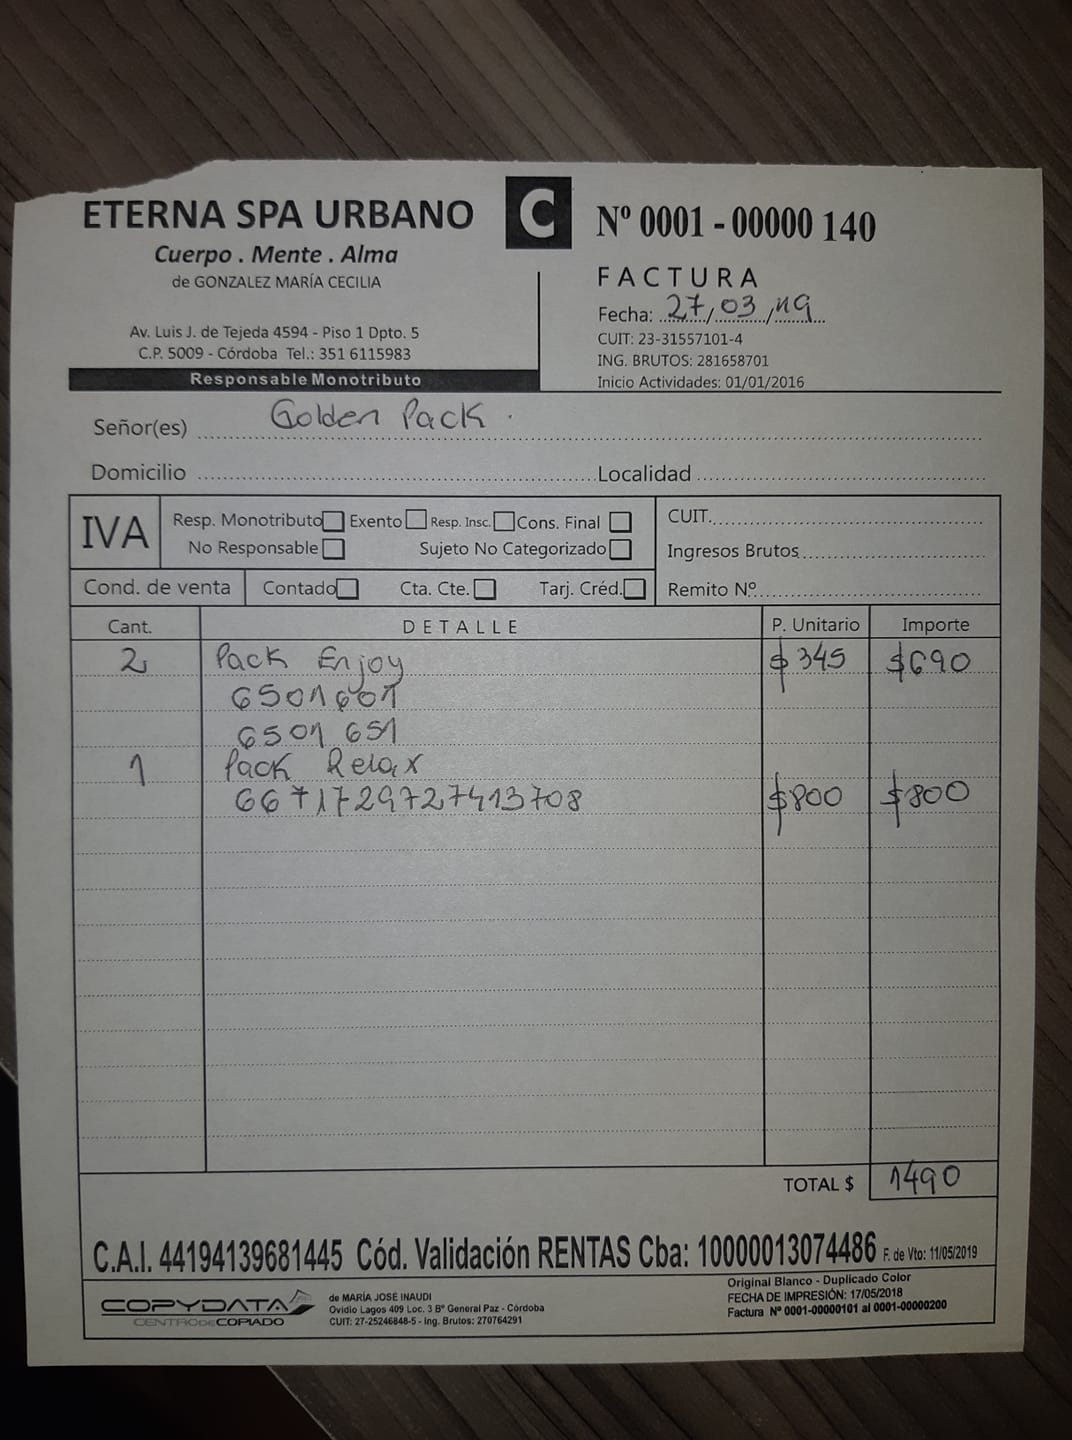 ETERNA SPA URBANO
Cuerpo . Mente . Alma
de GONZALEZ MARÍA CECILIA
Av. Luis J. de Tejeda 4594 - Piso 1 Dpto. 5
C.P. 5009 - Córdoba Tel.: 351 6115983
Responsable Monotributo
C
Nº 0001 - 00000 140
FACTURA
Fecha: 27/03/19
CUIT: 23-31557101-4
ING. BRUTOS: 281658701
Inicio Actividades: 01/01/2016
Señor(es) Golden Pack.
Domicilio Localidad
IVA Resp. Monotributo Exento Resp. Insc. Cons. Final
No Responsable Sujeto No Categorizado
CUIT.
Ingresos Brutos
Cond. de venta Contado Cta. Cte. Tarj. Créd. Remito Nº
Cant. DETALLE P. Unitario Importe
2 Pack Enjoy $345 $690
6501601
6501651
1 Pack Relax
6671729727413708 $800 $800
TOTAL $ 1490
C.A.I. 44194139681445 Cód. Validación RENTAS Cba: 10000013074486 F. de Vto: 11/05/2019
COPYDATA
CENTRO DE COPIADO
de MARÍA JOSÉ INAUDI
Ovidio Lagos 409 Loc. 3 Bº General Paz - Córdoba
CUIT: 27-25246848-5 - Ing. Brutos: 270764291
Original Blanco - Duplicado Color
FECHA DE IMPRESIÓN: 17/05/2018
Factura Nº 0001-00000101 al 0001-00000200